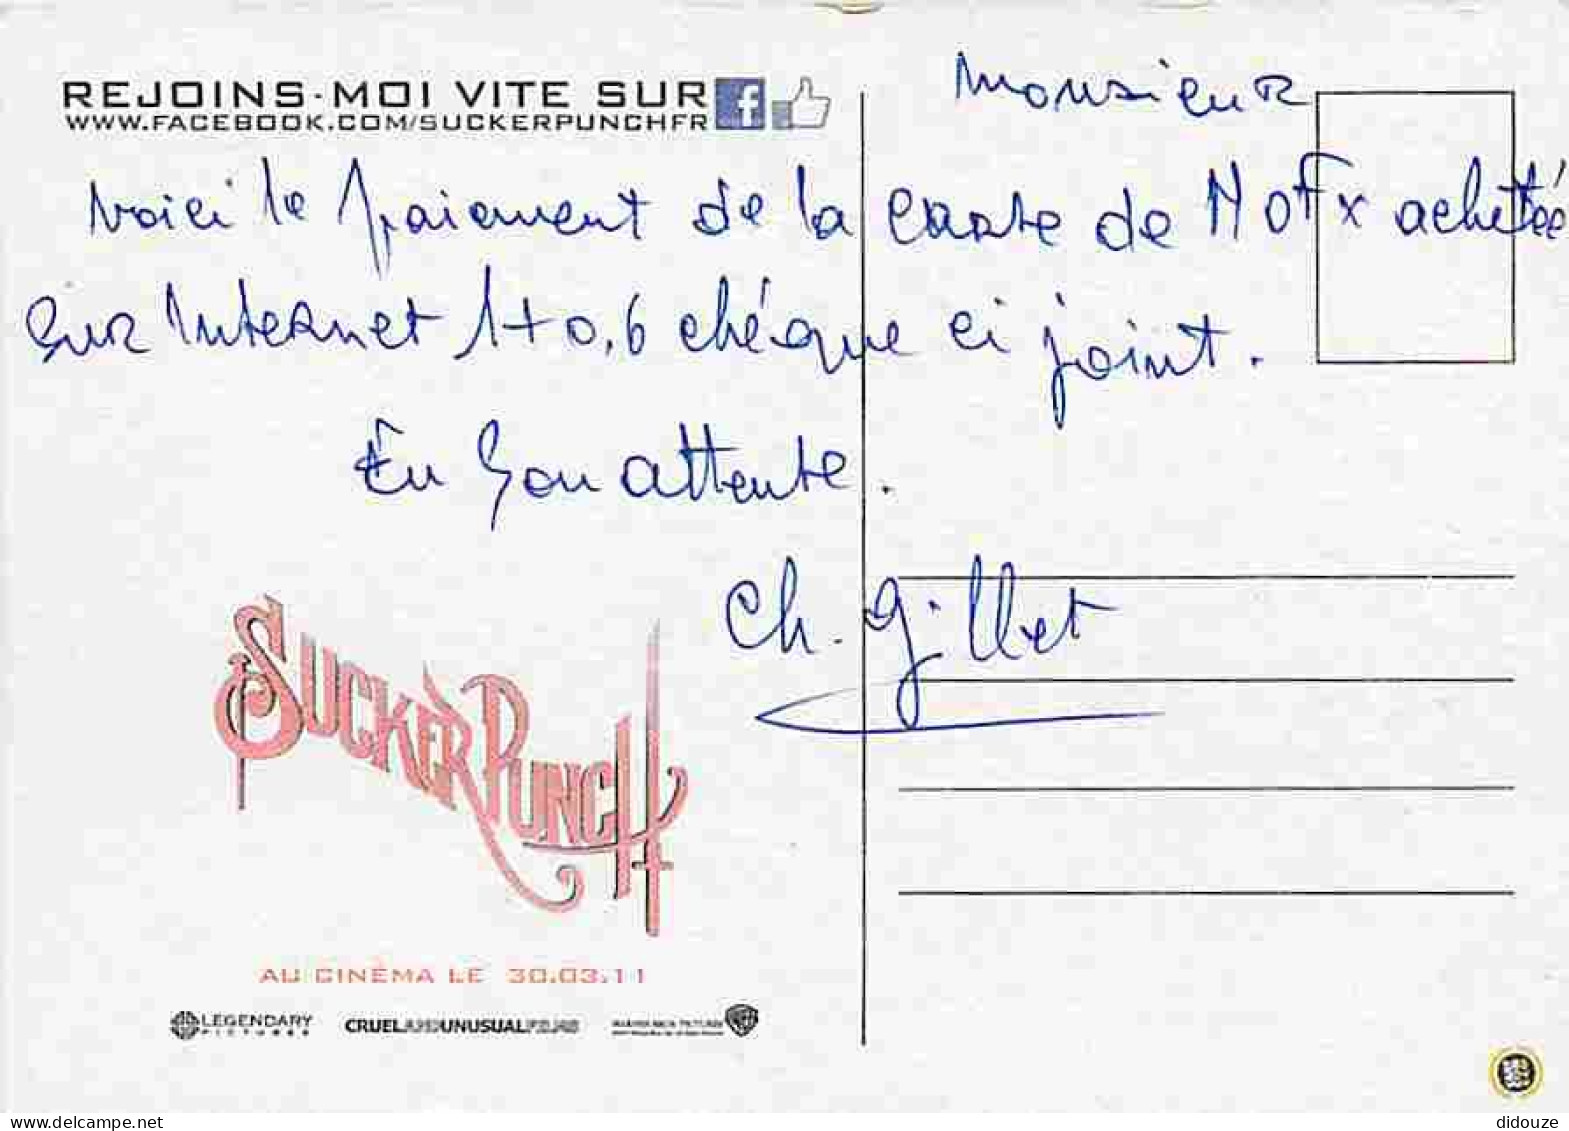 REJOINS-MOI VITE SUR
WWW.FACEBOOK.COM/SUCKERPUNCHFR
Monsieur
Voici le paiement de la carte de NOFx achetée
sur Internet 1+0,6 chéque ci joint.
En son attente.
Ch. Gillet
SUCKER PUNCH
AU CINÉMA LE 30.03.11
LEGENDARY
PICTURES
CRUELANDUNUSUALFILMS
WARNER BROS. PICTURES
delcampe.net
didouze